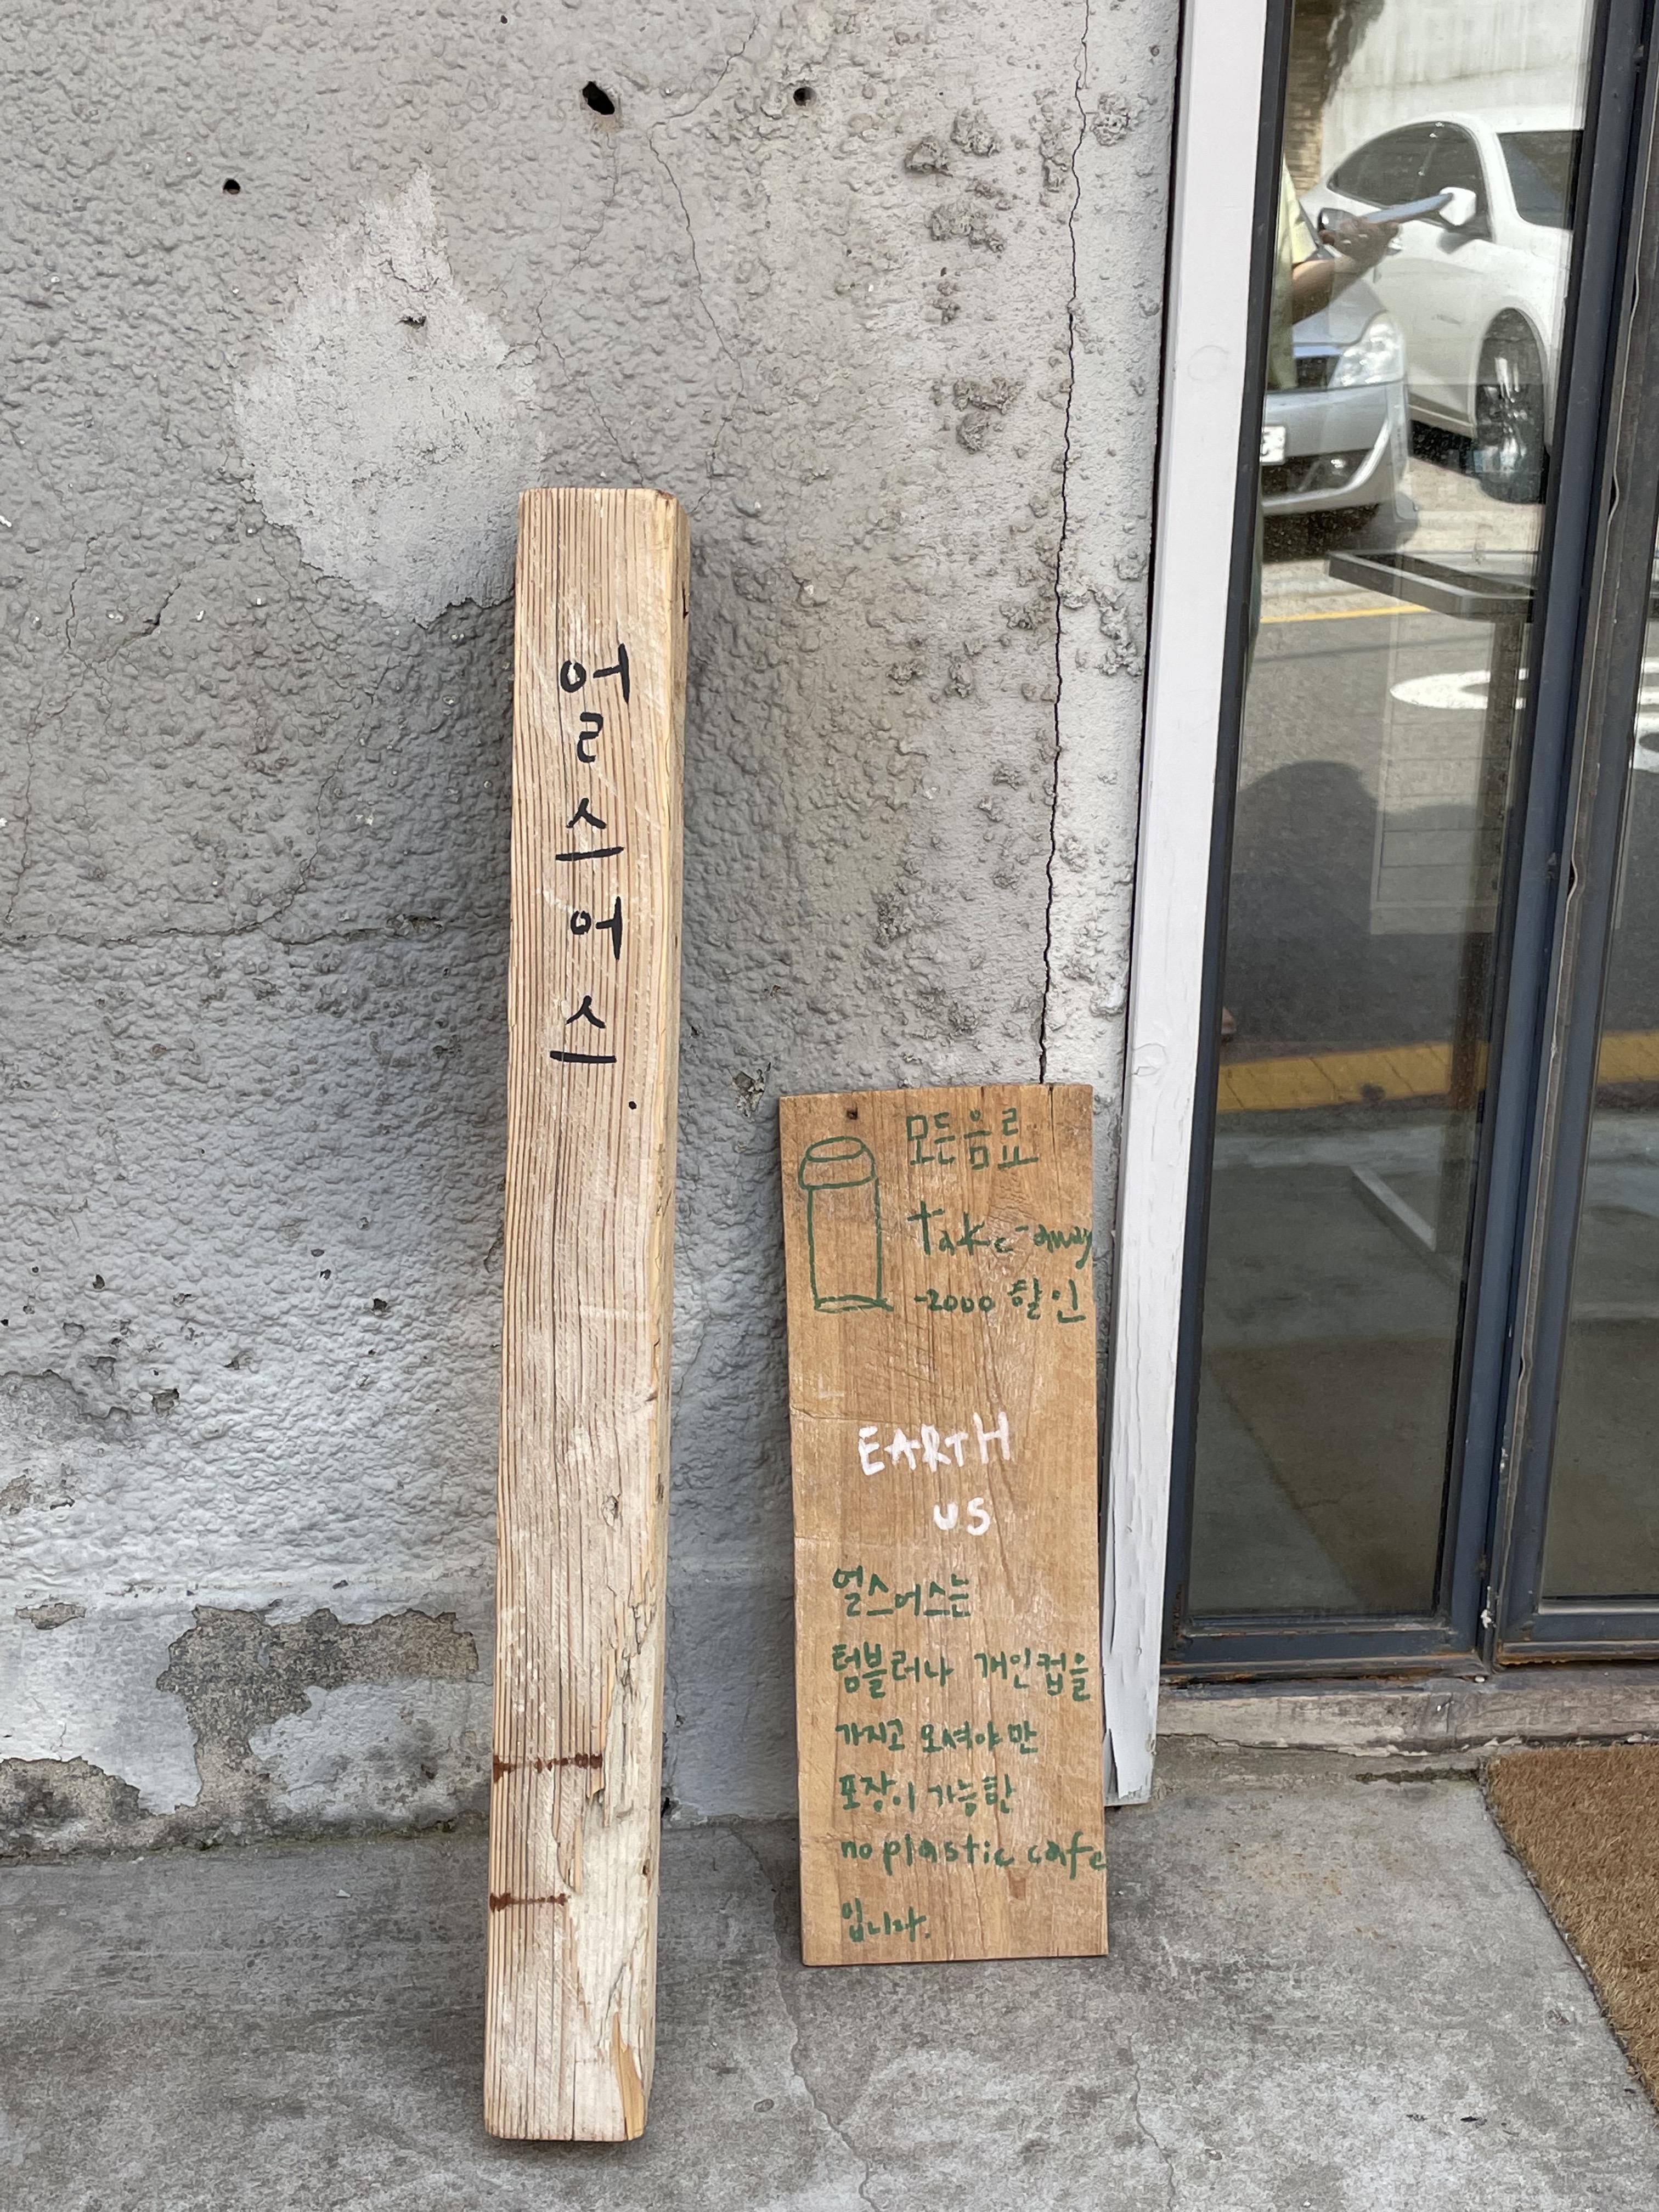 얼스어스
모든음료
take-away
-2000 할인
EARTH
US
얼스어스는
텀블러나 개인컵을
가지고 오셔야만
포장이 가능한
no plastic cafe
입니다.